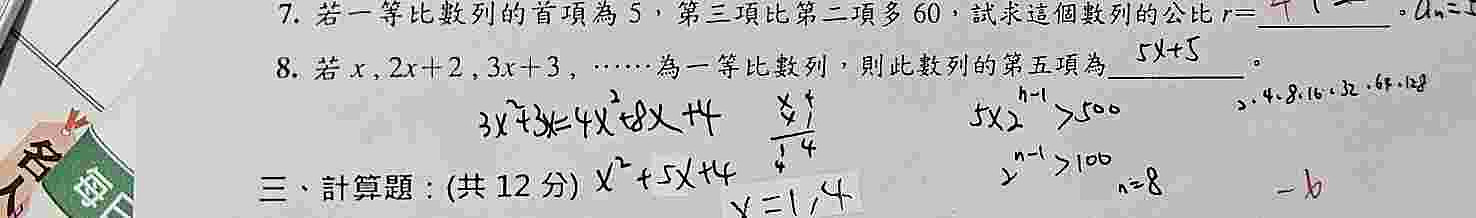 7. 若一等比數列的首項為 5，第三項比第二項多 60，試求這個數列的公比 r=
8. 若 x , 2x+2 , 3x+3 , ……為一等比數列，則此數列的第五項為 5x+5 。
3x²+3x=4x²+8x+4
5x2ⁿ⁻¹>500
2、4、8、16、32、64、128
x²+5x+4
2ⁿ⁻¹>100
n=8
-6
三、計算題：(共 12 分)
x=1,4
每日